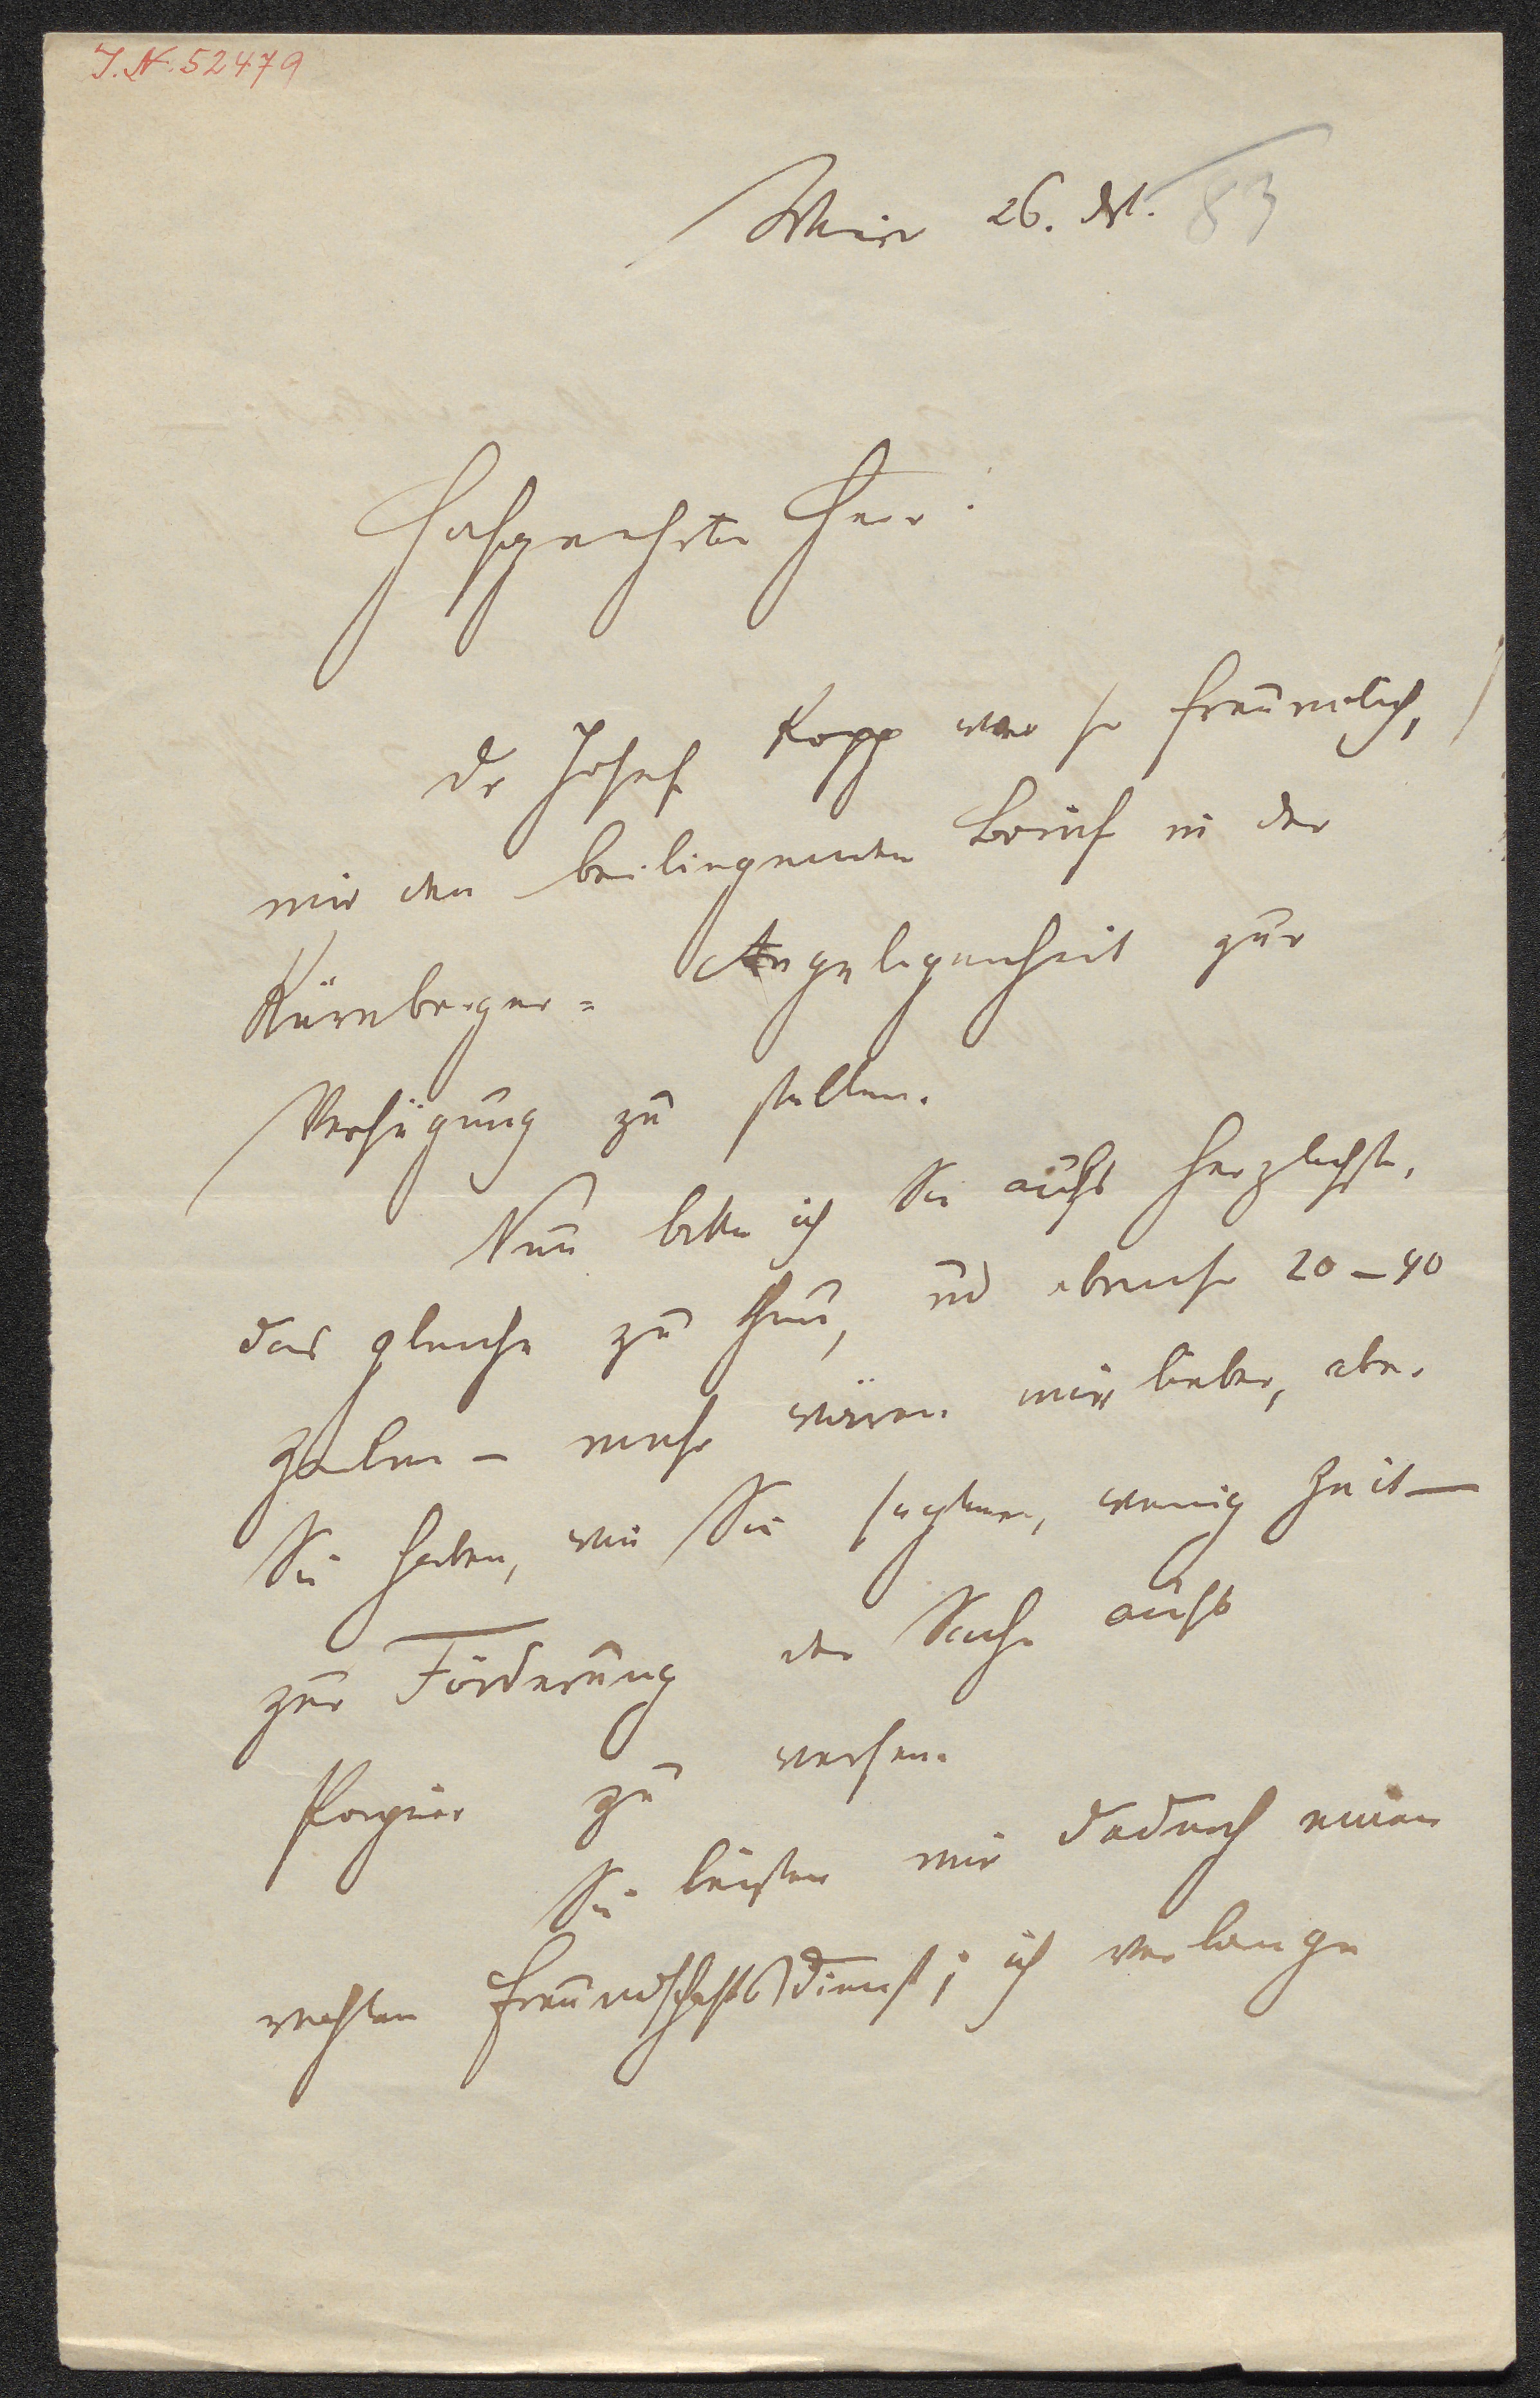 J. N. 52479
Wien 26. Okt. 83
Hochgeehrter Herr!
Dr Josef Kopp war so freundlich,
mir den beiliegenden Brief in der
Kürnberger- Angelegenheit zur
Verfügung zu stellen.
Nun bitte ich Sie aufs herzlichste,
das gleiche zu thun, und ebenso 20–40
Zeilen – mehr wären mir lieber, aber
Sie haben, wie Sie sagten, wenig Zeit –
zur Förderung der Sache aufs
Papier zu werfen.
Sie leisten mir dadurch einen
rechten Freundschaftsdienst; ich verlange